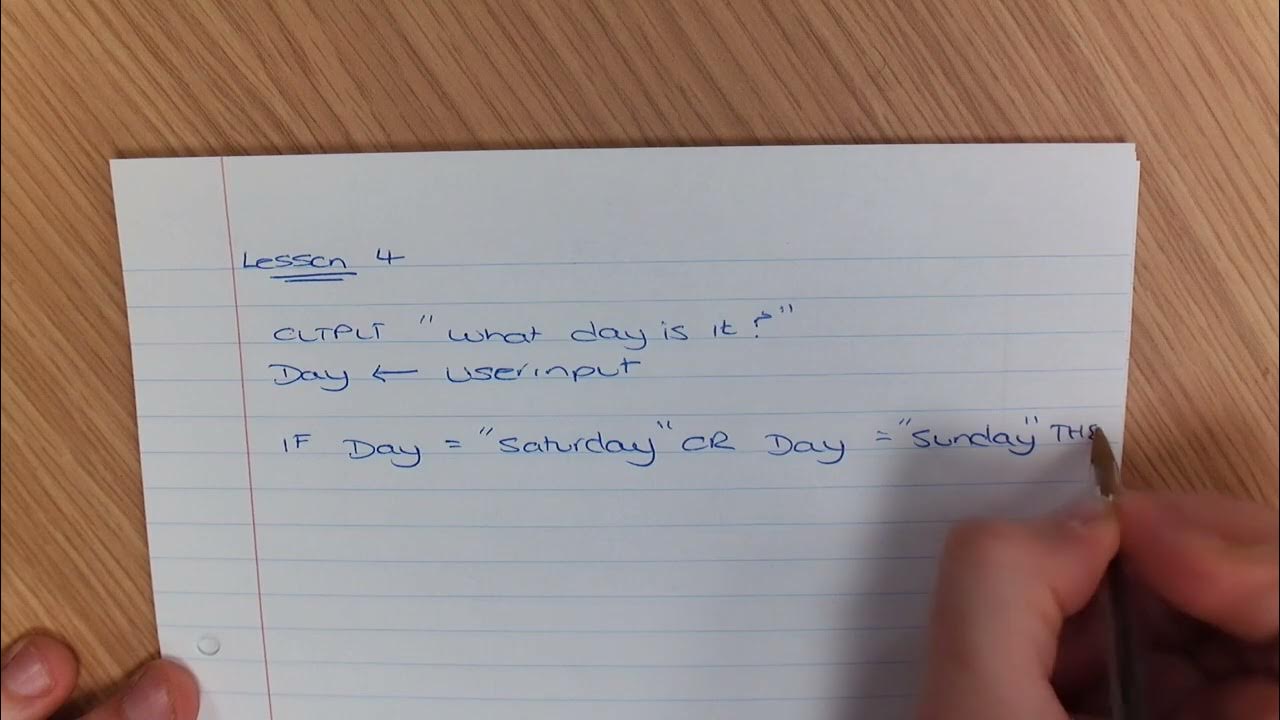 Lesson 4
OUTPUT "What day is it?"
Day ← userinput
IF Day = "Saturday" OR Day = "Sunday" THE